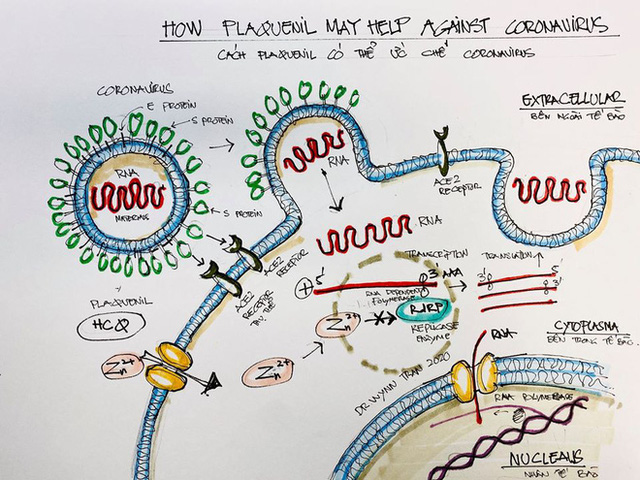 HOW PLAQUENIL MAY HELP AGAINST CORONAVIRUS
CÁCH PLAQUENIL CÓ THỂ ỨC CHẾ CORONAVIRUS
CORONAVIRUS
E PROTEIN
S PROTEIN
RNA
MATERIALS
S PROTEIN
RNA
EXTRACELLULAR
BÊN NGOÀI TẾ BÀO
ACE2
RECEPTOR
RNA
ACE2
RECEPTOR
ACE2
RECEPTOR
PLAQUENIL
HCQ
Zn2+
Zn2+
Zn2+
TRANSCRIPTION
TRANSLATION
+ 5' 3' AAA
3' 5'
3'
RNA DEPENDENT
POLYMERASE
RDRP
REPLICASE
ENZYME
DR WYNN TRAN 2020
CYTOPLASMA
BÊN TRONG TẾ BÀO
RNA
RNA POLYMERASE
NUCLEAUS
NHÂN TẾ BÀO